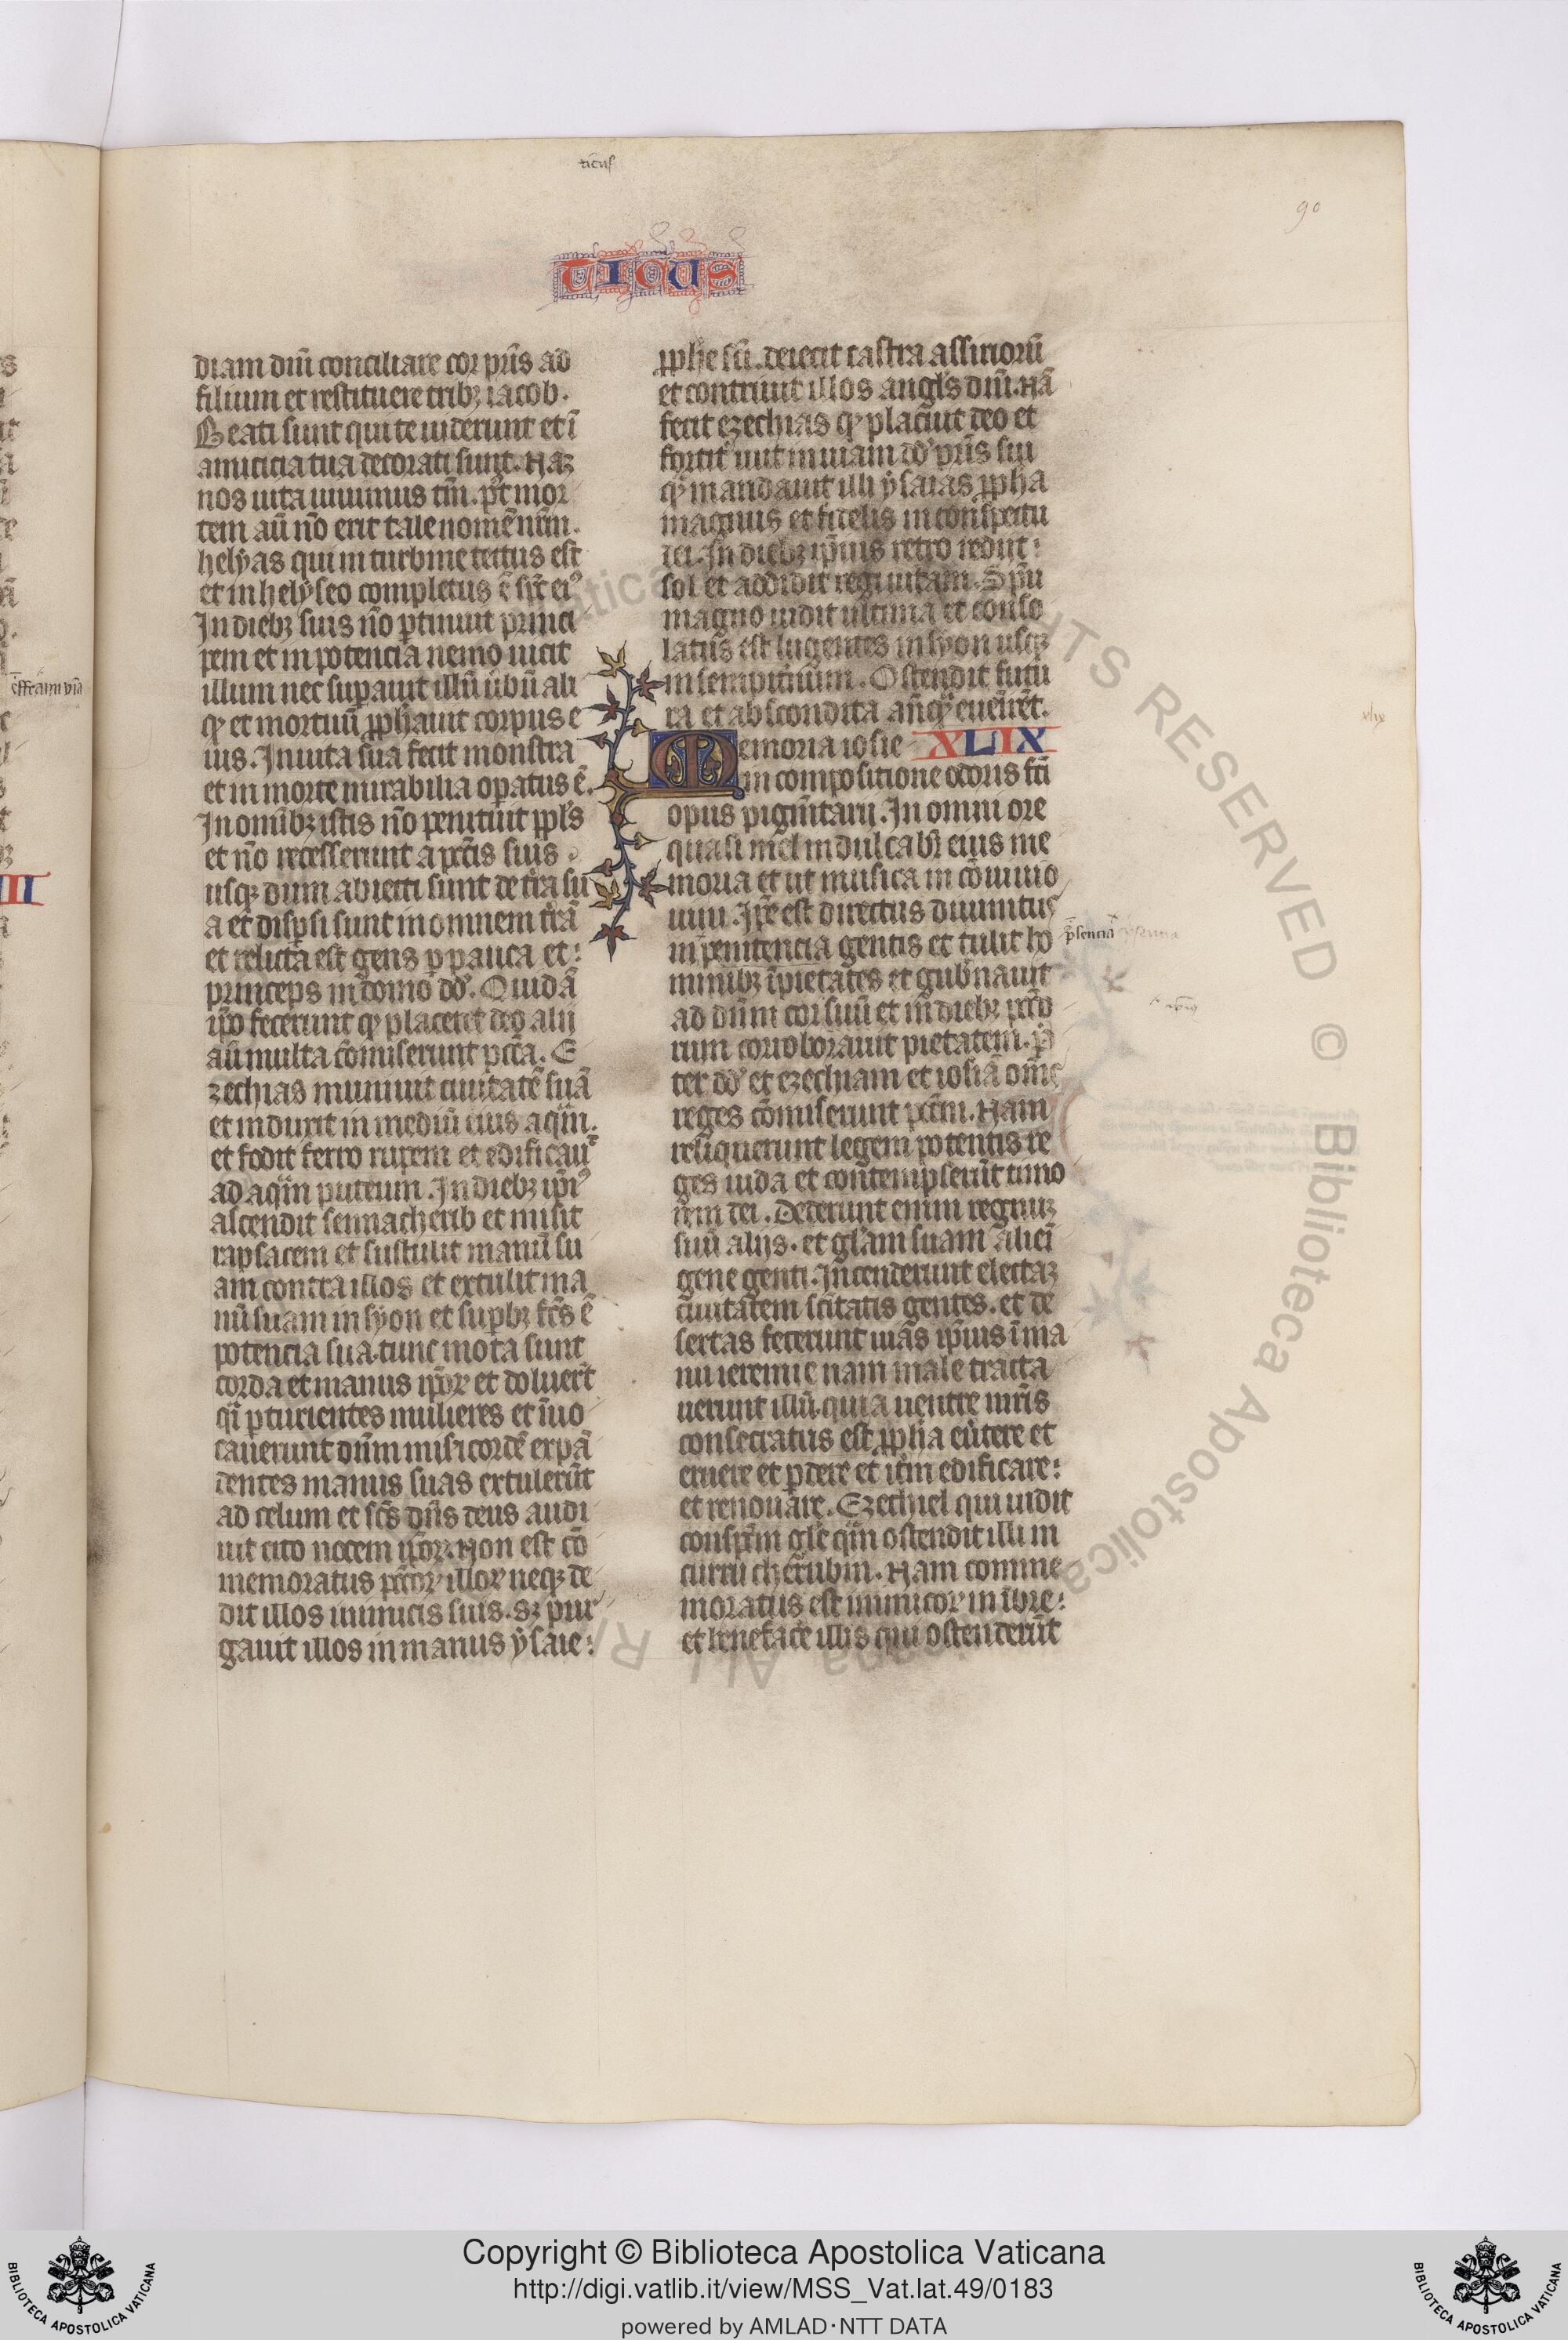 ticus
90
TICUS
diam dñi conciliare cor pr̃is ad
filium et restituere tribꝫ iacob.
Beati sunt qui te uiderunt et ĩ
amicicia tua decorati sunt. Naꝫ
nos uita uiuimus tm̃. p̃t mor
tem aũ nõ erit tale nomẽ nr̃m.
helyas qui in turbine tectus est
et in helyseo completus ẽ sp̃c ei᾽
In diebꝫ suis nõ ptimuit princi
pem et in potencia nemo uicit
illum nec supauit illũ ũbũ ali
qͥ et mortuũ ꝓph̃auit corpus e
ius. In uita sua fecit monstra
et in morte mirabilia opatus ẽ.
In om̃ibꝫ istis nõ penituit ppl̃s
et nõ recesserunt a pcc̃is suis
usqꝫ dum abiecti sunt de tr̃a su
a et dispsi sunt in omnem tr̃ã
et relicta est gens ppauca et:
princeps in domo dd᾽. Quidã
ip̃o fecerunt qͥ placeret deo alij
aũ multa cõmiserunt pcc̃a. E
zechias muniuit ciuitatẽ suã
et induxit in mediũ eius aqm̃.
et fodit ferro rupem et edificau᾽
ad aqm̃ puteum. In diebꝫ ip̃i᾽
ascendit sennacherib et misit
rapsacem et sustulit manũ su
am contra illos et extulit ma
nũ suam in syon et supbꝫ fc̃s ẽ
potencia sua. tunc mota sunt
corda et manus ip̃oꝝ et doluert̃
qͥ pturientes mulieres et ĩuo
cauerunt dñm misͥcordẽ expã
dentes manus suas extulerũt
ad celum et sc̃s dñs deus audi
uit cito uocem ip̃oꝝ. Non est cõ
memoratus pcc̃oꝝ illoꝝ neqꝫ de
dit illos inimicis suis. sꝫ pur
gauit illos in manus ysaie:
ꝓph̃e sc̃i. deiecit castra assirioꝝũ
et contriuit illos angl̃s dñi. Nã
fecit ezechias qͥ placuit deo et
fortit᾽ iuit in uiam dd᾽ pr̃is sui
qͣ mandauit illi ysaias ꝓpha
magnus et fidelis in conspectu
dei. In diebꝫ ip̃ius retro rediit:
sol et addidit regi uitam. Sp̃u
magno uidit ultima et conso
latus est lugentes in syon usqꝫ
in sempit̃nũm. Ostendit futu
ra et abscondita añqͣ eueñiret̃.
XLIX
Memoria iosie
in compositione odoris fc̃i
opus pigmẽtarij. In omni ore
quasi mel indulcabit̃ eius me
moria et ut musica in cõuiuio
uini. Ip̃e est directus diuinitus
in penitencia gentis et tulit ho
minibꝫ ĩpietates et gub̃nauit
ad dñm cor suũ et in diebꝫ pcc̃o
rum corroborauit pietatem. p̃
ter dd᾽ et ezechiam et iosiã om̃e
reges cõmiserunt pcc̃m. Nam
reliquerunt legem potentis re
ges iuda et contempserũt timo
rem dei. Dederunt enim regnuꝫ
suũ alijs. et glam̃ suam alieni
gene genti. Incenderunt electaꝫ
ciuitatem sc̃itatis gentes. et de
sertas fecerunt uias ip̃ius ĩ ma
nu ieremie nam male tracta
uerunt illũ. qui a uentre mr̃is
consecratus est ꝓpha eũtere et
eruere et pdere et itm̃ edificare:
et renouare. Ezechiel qui uidit
conspcm̃ gl̃e qm̃ ostendit illi in
curru cherubin. Nam comme
moratus est inimicoꝝ in ĩbre:
et benefacere illis qui ostenderũt
p̃sencia
xlix
III
Copyright © Biblioteca Apostolica Vaticana
http://digi.vatlib.it/view/MSS_Vat.lat.49/0183
powered by AMLAD·NTT DATA
BIBLIOTECA APOSTOLICA VATICANA
BIBLIOTECA APOSTOLICA VATICANA